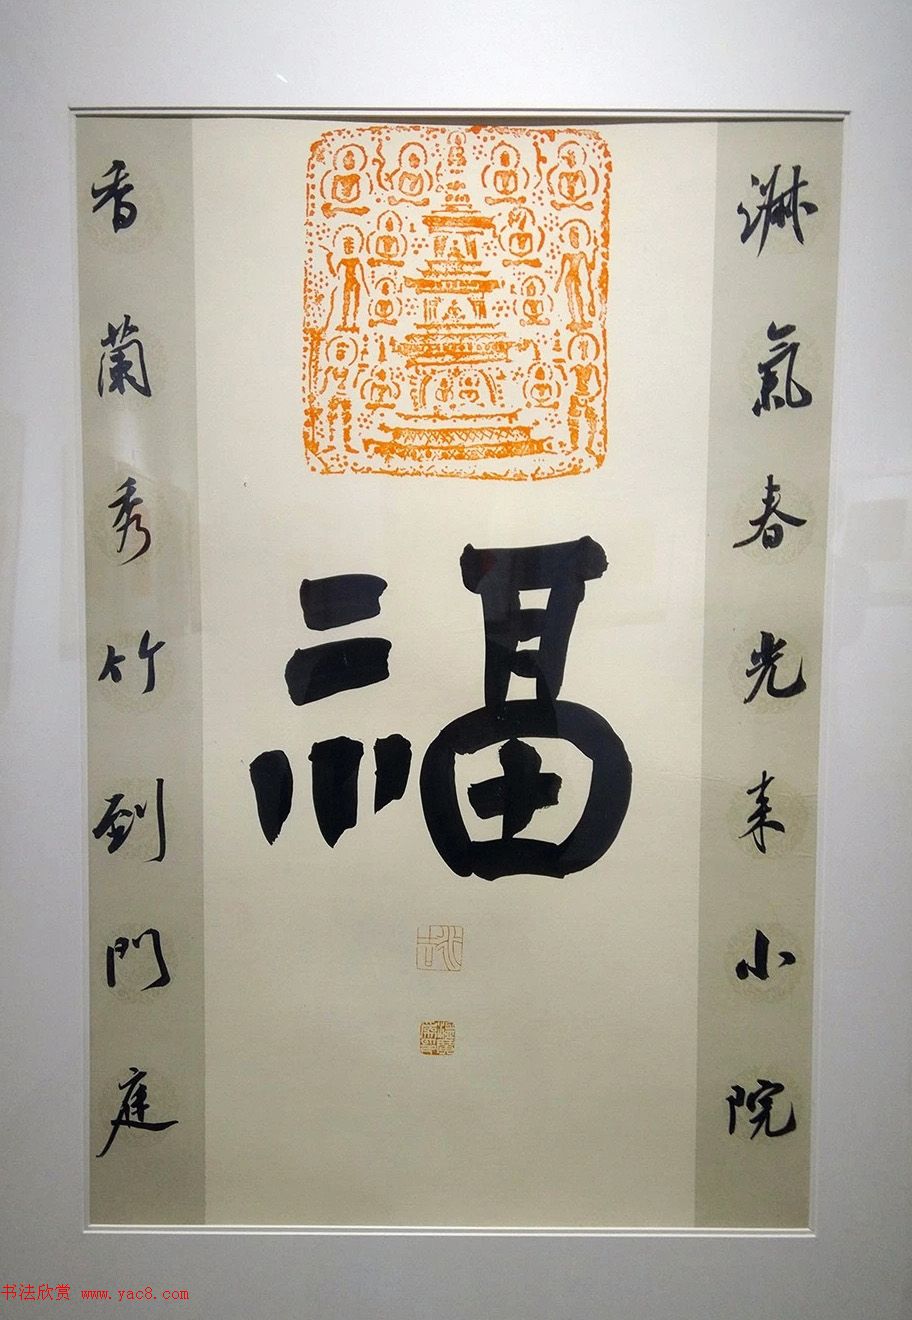 淑氣春光来小院
福
香蘭秀竹到門庭
书法欣赏 www.yac8.com